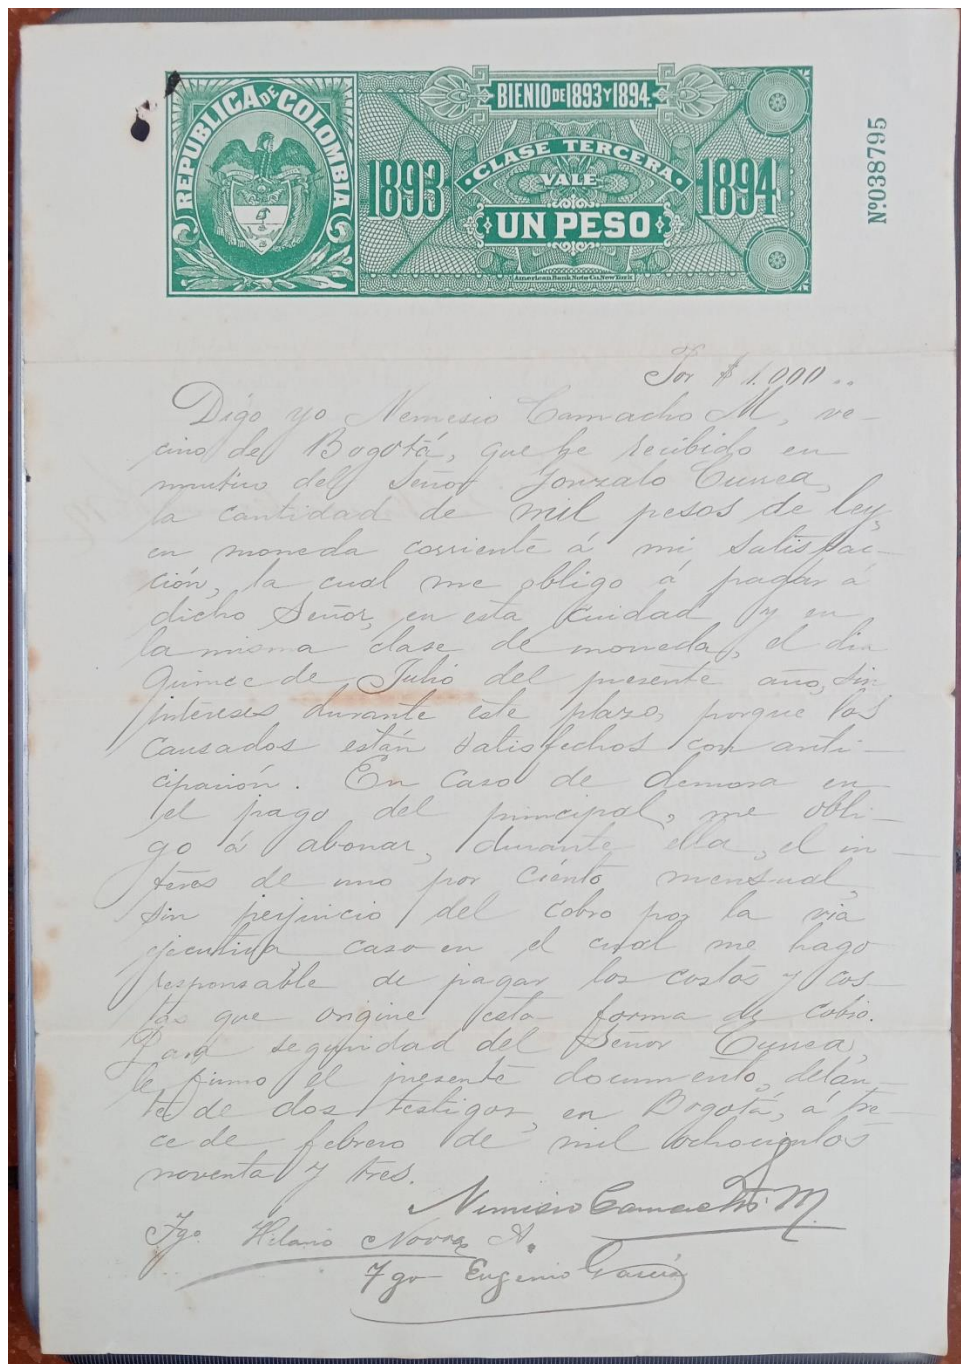 REPUBLICA DE COLOMBIA
BIENIO DE 1893 Y 1894.
1893
CLASE TERCERA
VALE
UN PESO
1894
American Bank Note Co. New York
Nº 038795
Por $ 1.000..
Digo yo Nemesio Camacho M, ve-
cino de Bogotá, que he recibido en
mutuo del Señor Gonzalo
la cantidad de mil pesos de ley,
en moneda corriente á mi satisfac-
ción, la cual me obligo á pagar á
dicho Señor, en esta ciudad y en
la misma clase de moneda, el dia
quince de Julio del presente año, sin
intereses durante este plazo, porque los
causados están satisfechos con anti-
cipación. En caso de demora en
el pago del principal, me obli-
go á abonar, durante ella, el in-
terés de uno por ciento mensual,
sin perjuicio del cobro por la via
ejecutiva caso en el cual me hago
responsable de pagar los costos y cos-
tas que origine esta forma de cobro.
Para seguridad del Señor
le firmo el presente documento, delan
te de dos testigos, en Bogotá, á tre-
ce de febrero de mil ochocientos
noventa y tres.
Nemesio Camacho M.
Tgo. Hilario A.
Tgo- Eugenio García